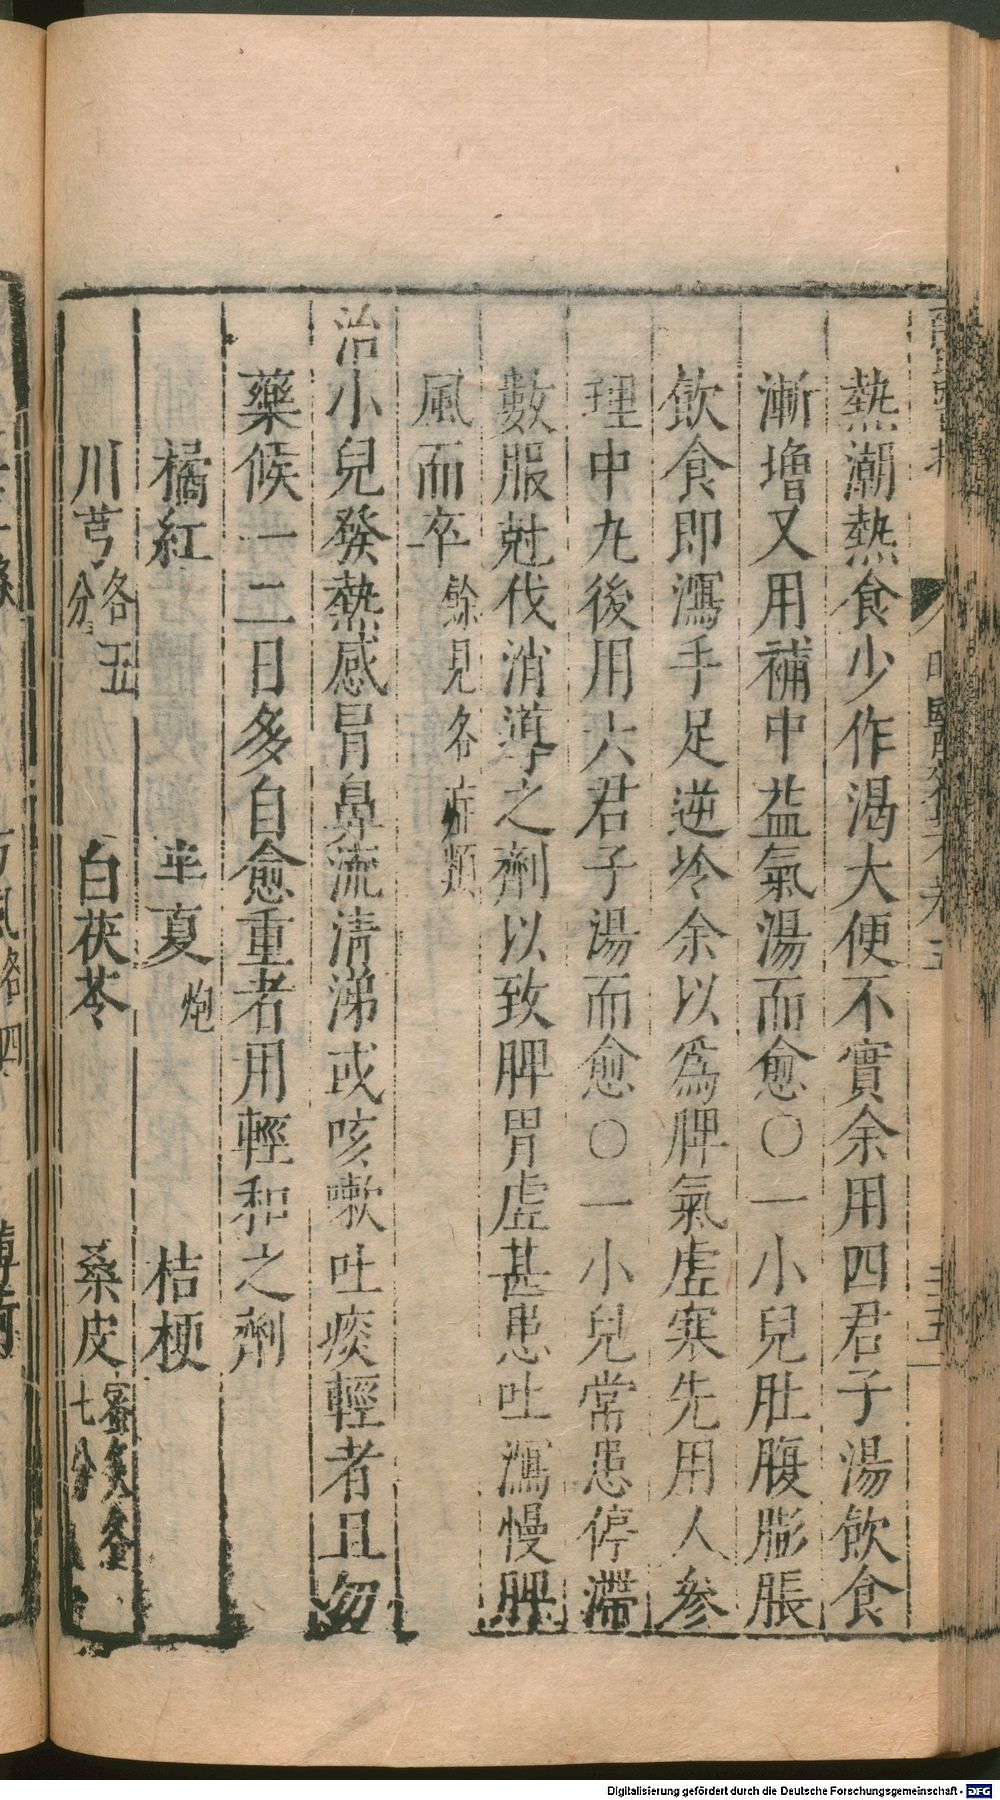 熱潮熱食少作渴大便不實余用四君子湯飲食
漸增又用補中益氣湯而愈○一小兒肚腹膨脹
飲食即瀉手足逆冷余以爲脾氣虛寒先用人參
理中丸後用六君子湯而愈○一小兒常患停滯
數服尅伐消導之劑以致脾胃虛甚患吐瀉慢脾
風而卒餘見各症類
治小兒發熱感冒鼻流清涕或咳嗽吐痰輕者且勿
藥候一二日多自愈重者用輕和之劑
橘紅 半夏炮 桔梗
川芎各五分 白茯苓 桑皮蜜炙各七分
Digitalisierung gefördert durch die Deutsche Forschungsgemeinschaft - DFG